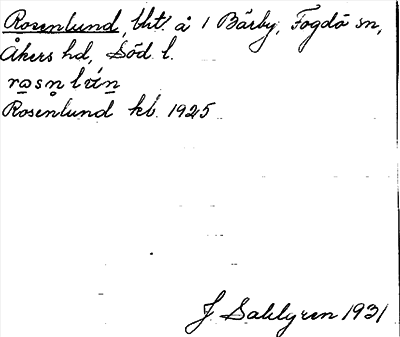 Rosenlund, bht. å 1 Bärby, Fogdö sn,
Åkers hd, Söd. l.
Rosenlund kb. 1925
J Sahlgren 1931